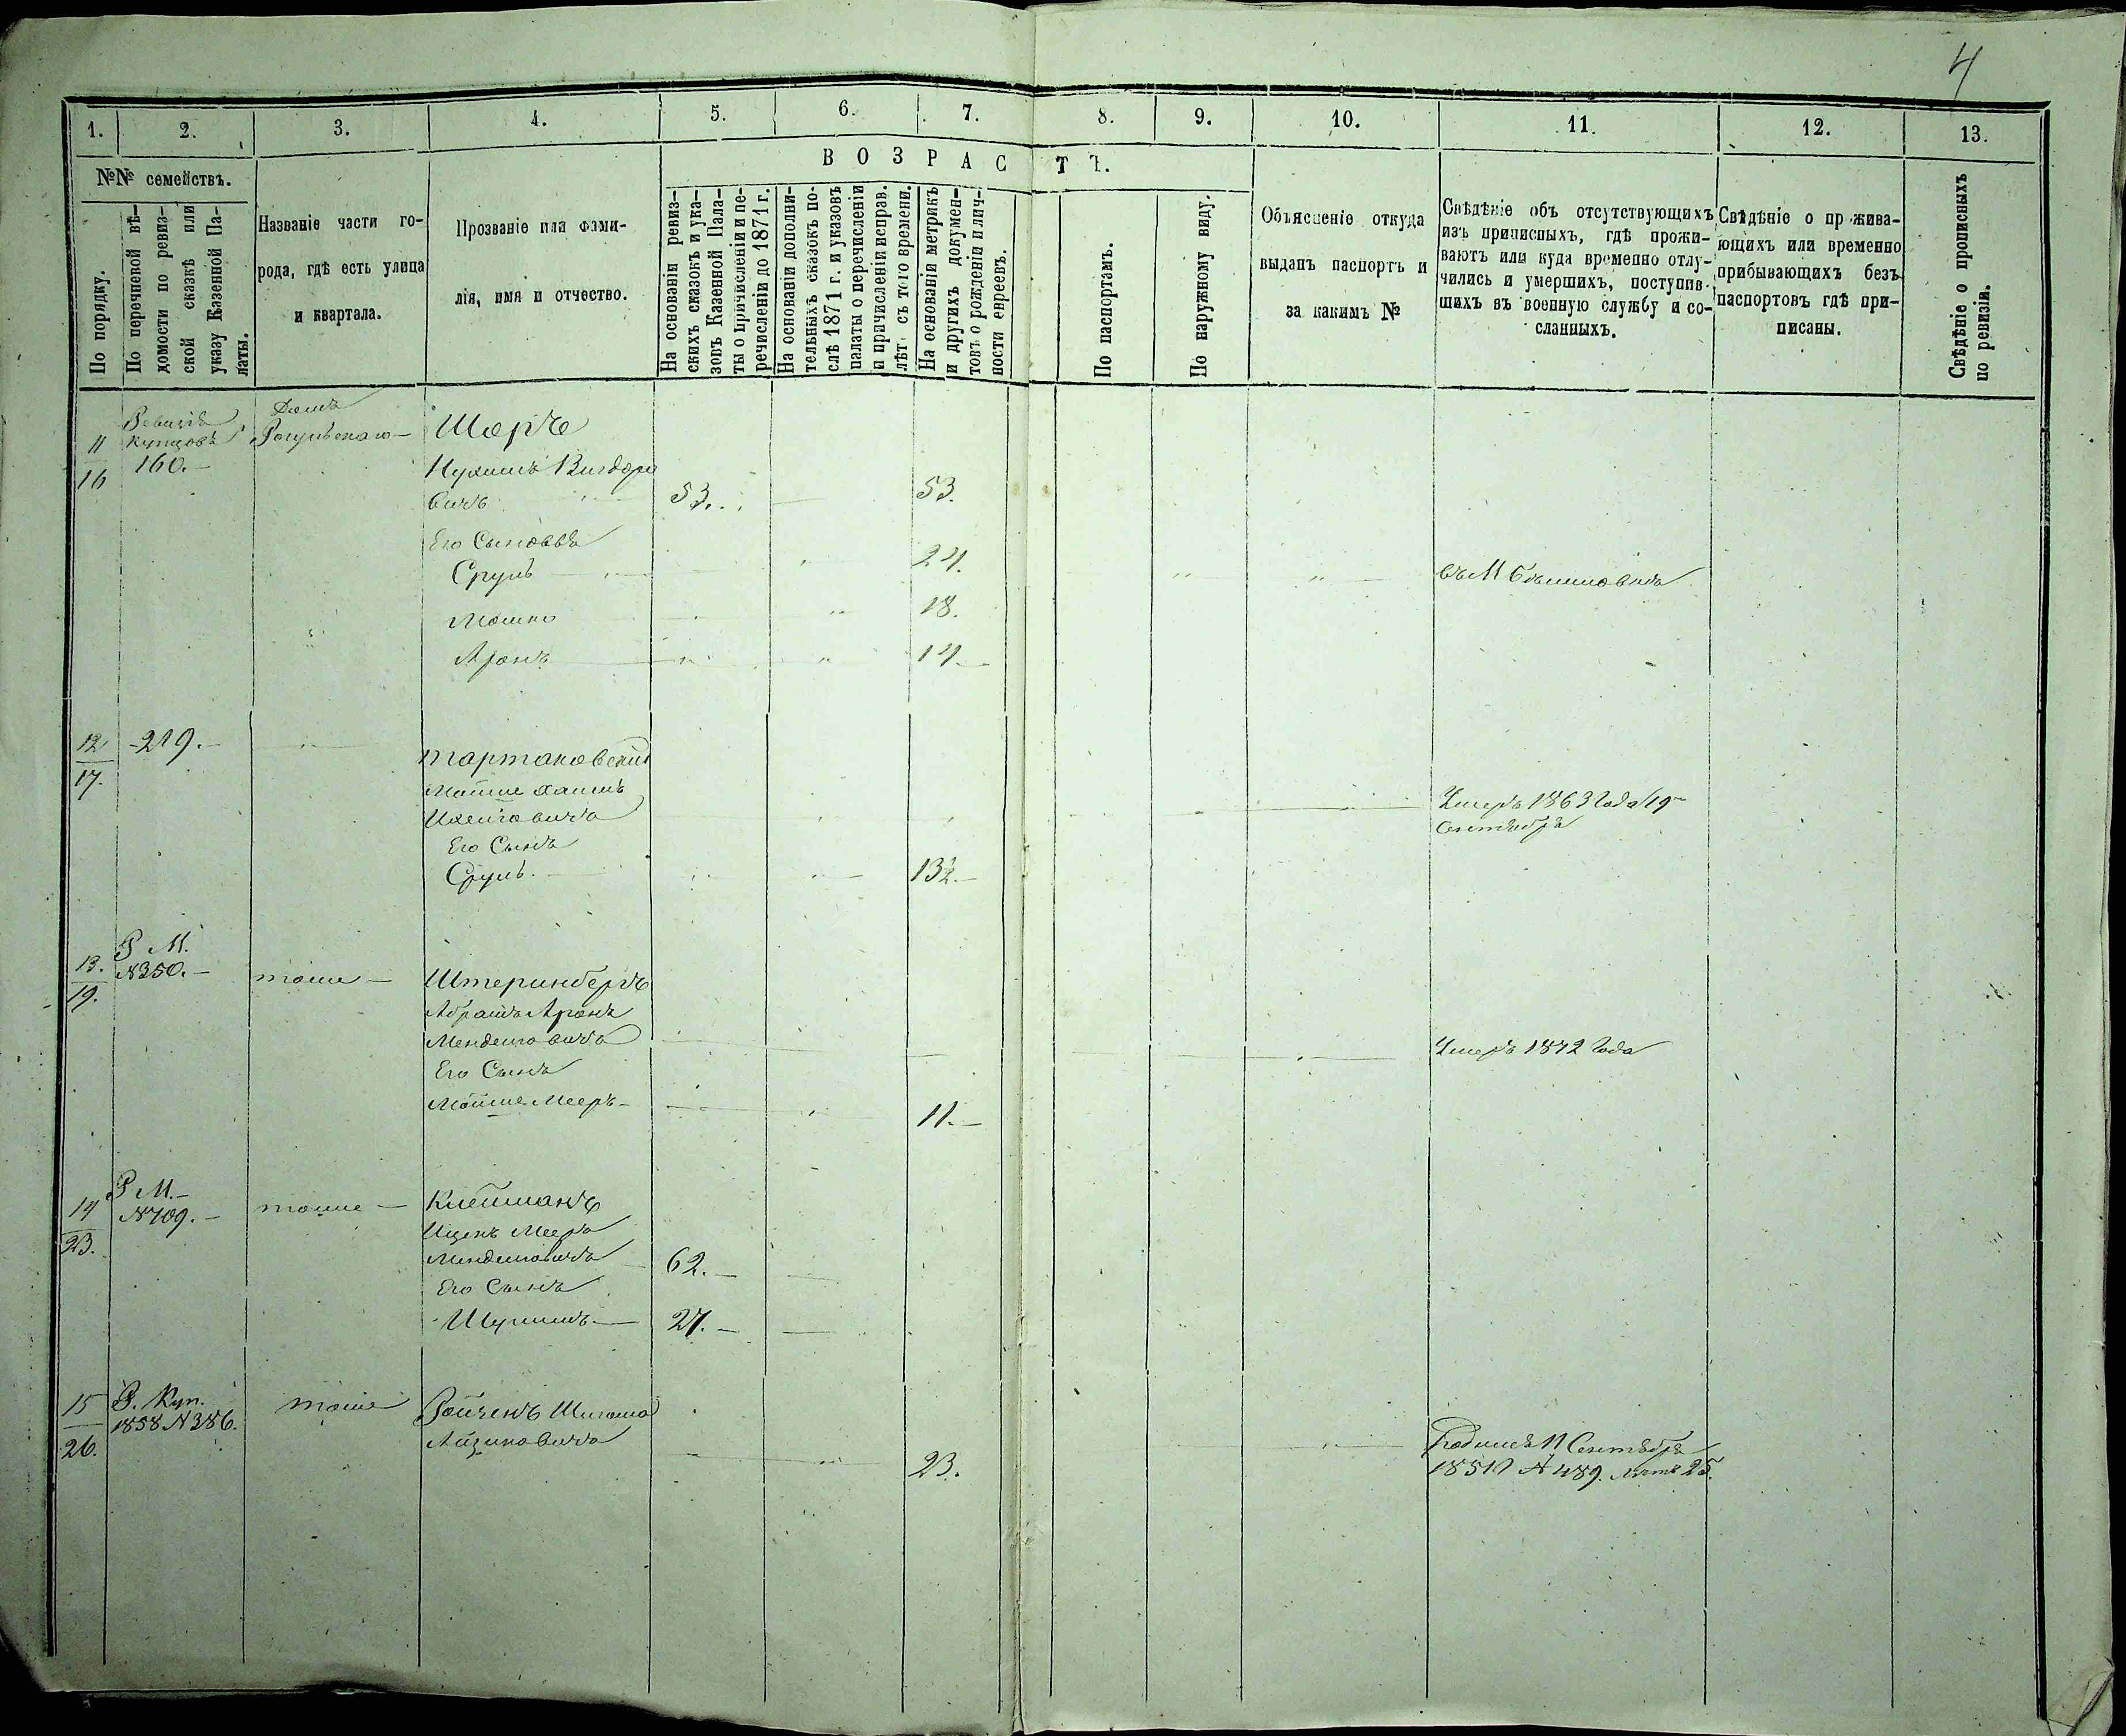 4
1. 2. 3. 4. 5. 6. 7. 8. 9. 10. 11. 12. 13.
№№ семействъ.
По порядку.
По перечневой вѣ-
домости по ревиз-
ской сказкѣ или
указу Казенной Па-
латы.
Названіе части го-
рода, гдѣ есть улица
и квартала.
Прозваніе или фами-
лія, имя и отчество.
ВОЗРАСТЪ.
На основаніи ревиз-
скихъ сказокъ и ука-
зовъ Казенной Пала-
ты о причисленіи и пе-
речисленіи до 1871 г.
На основаніи дополни-
тельныхъ сказокъ по-
слѣ 1871 г. и указовъ
палаты о перечисленіи
и причисленіи исправ.
лѣт. съ того времени.
На основаніи метрикъ
и другихъ докумен-
товъ о рожденіи и лич-
ности евреевъ.
По паспортамъ.
По наружному виду.
Объясненіе откуда
выданъ паспортъ и
за какимъ №
Свѣдѣніе объ отсутствующихъ
изъ приписныхъ, гдѣ прожи-
ваютъ или куда временно отлу-
чились и умершихъ, поступив-
шихъ въ военную службу и со-
сланныхъ.
Свѣдѣніе о прожива-
ющихъ или временно
прибывающихъ безъ
паспортовъ гдѣ при-
писаны.
Свѣдѣніе о прописныхъ
по ревизіи.
Домъ
11 Купцовъ Шоръ
16 160.
Нухимъ Вигдоро
вичъ 53. 53.
Его Сыновья
Сруль 24. въ М
Мошко 18.
Аронъ 14.
12 219. Тартаковскій
17.
Мойше Хаимъ
Умеръ 1863 года 19
Сентября
Его Сынъ
Сруль. 13½.
Р М.
13. №350. тоже Штеринбергъ
19.
Абрамъ Аронъ
Менделевичъ Умеръ 1872 года
Его Сынъ
Мойше Мееръ 11.
Р М.
14 №709. тоже Клейманъ
23.
Ицекъ Мееръ
Менделевичъ 62.
Его Сынъ
Шулимъ 27.
15 Р. Куп. тоже Ройзенъ
26. 1858 №386.
Айзиковичъ 23.
Родился 11 Сентября
№ 489. 25.